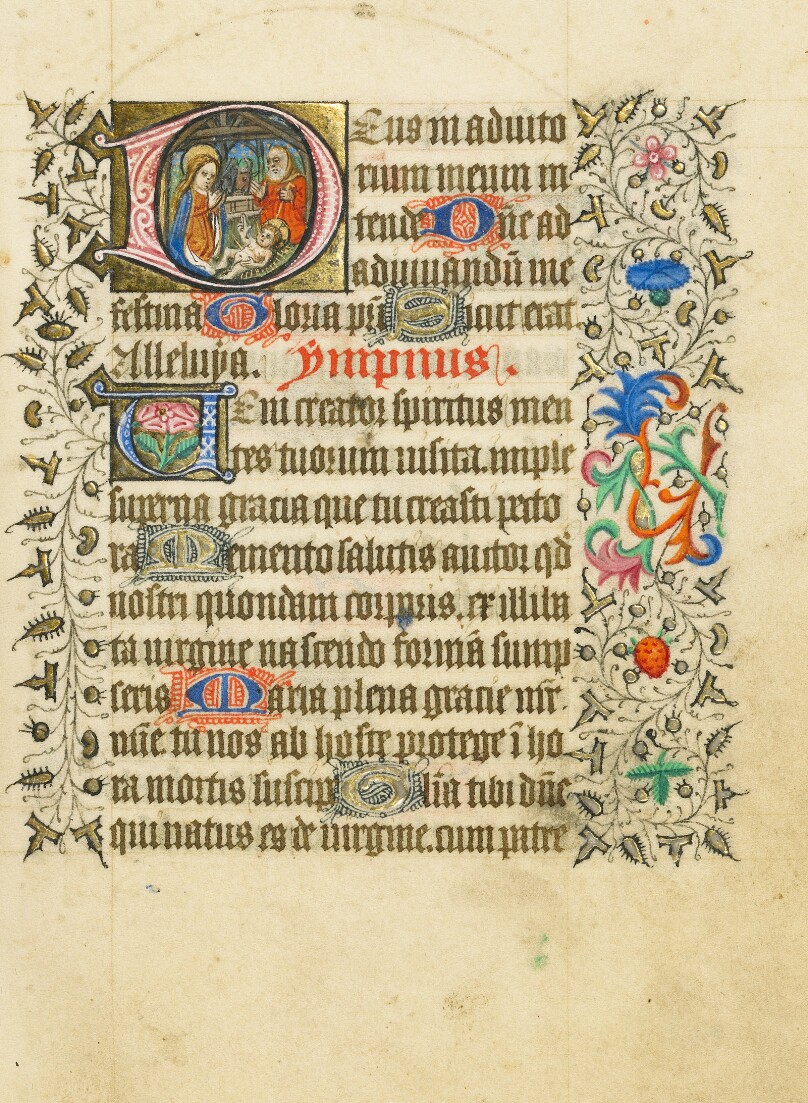 Deus in adiuto
rium meum in
tende Dn̄e ad
adiuuandū me
festina Gloria pr̄i Sicut erat
Alleluya. ympnus.
Ueni creator spiritus men
tes tuorum uisita. imple
superna gracia que tu creasti pecto
ra Memento salutis auctor qd̄
nostri quondam corporis. ex illiba
ta uirgine nascendo formā sump
seris Maria plena gracie mr̄.
mīe. tu nos ab hoste protege ī ho
ra mortis suscip Glīa tibi dn̄e
qui natus es de uirgine. cum patre